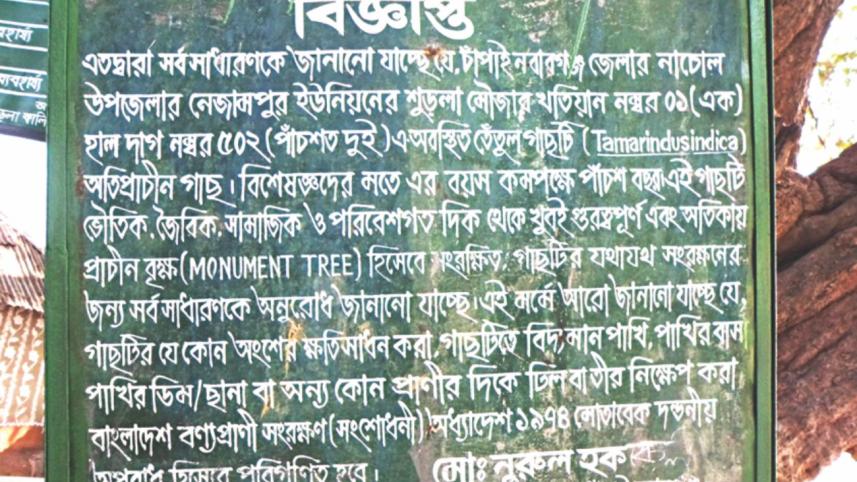 বিজ্ঞপ্তি
এতদ্বারা সর্ব সাধারণকে জানানো যাচ্ছে যে, চাঁপাই নবাবগঞ্জ জেলার নাচোল
উপজেলার নেজামপুর ইউনিয়নের শুড়লা মৌজার খতিয়ান নম্বর ০১ (এক)
হাল দাগ নম্বর ৫০২ (পাঁচশত দুই) এ অবস্থিত তেঁতুল গাছটি (Tamarindusindica)
অতিপ্রাচীন গাছ। বিশেষজ্ঞদের মতে এর বয়স কমপক্ষে পাঁচশ বছর। এই গাছটি
ভৌতিক, জৈবিক, সামাজিক ও পরিবেশগত দিক থেকে খুবই গুরত্বপূর্ণ এবং অতিকায়
প্রাচীন বৃক্ষ (MONUMENT TREE) হিসেবে সংরক্ষিত, গাছটির যথাযথ সংরক্ষনের
জন্য সর্ব সাধারণকে অনুরোধ জানানো যাচ্ছে। এই মর্মে আরো জানানো যাচ্ছে যে,
গাছটির যে কোন অংশের ক্ষতিসাধন করা, গাছটিতে বিদ্যমান পাখি, পাখির বাসা
পাখির ডিম/ছানা বা অন্য কোন প্রাণীর দিকে ঢিল বা তীর নিক্ষেপ করা
বাংলাদেশ বণ্যপ্রাণী সংরক্ষণ (সংশোধনী) অধ্যাদেশ ১৯৭৪ মোতাবেক দন্ডনীয়
অপরাধ হিসেবে পরিগণিত হবে।
মোঃ নুরুল হক